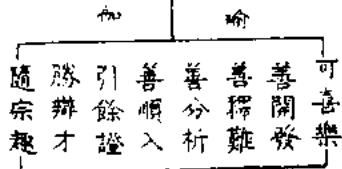 瑜伽
可喜樂
善開發
善釋難
善分析
善順入
引餘證
勝辯才
隨宗趣